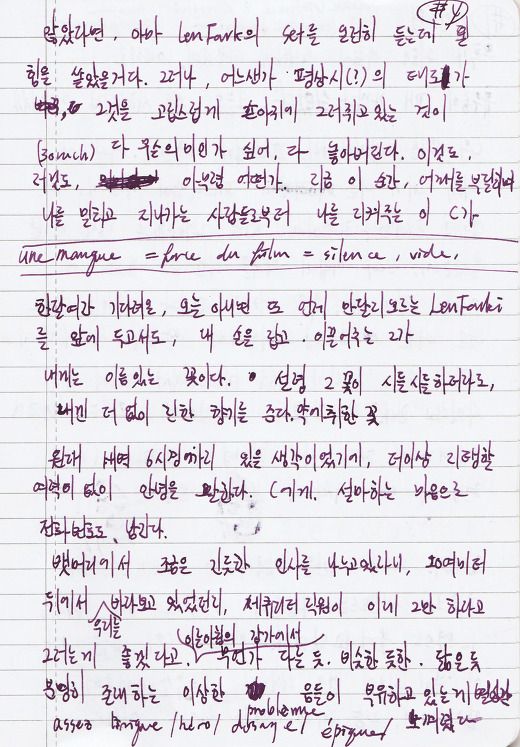 #4
않았다면, 아마 Len Fark의 set를 온전히 듣는데 온
힘을 쏟았을거다. 그러나, 어느샌가 평상시(?)의 태도가
그것을 고집스럽게 그러쥐고 있는 것이
다 무슨의미인가 싶어, 다 놓아버린다. 이것도,
저것도, 아무렴 어떤가. 지금 이 순간, 어깨를 부딪히며
나를 밀치고 지나가는 사람들로부터 나를 지켜주는 이 C가
une manque = force du film = silence, vide,
한달여간 기다려온, 오늘 아니면 또 언제 만날지 모르는 Len Farki
를 앞에 두고서도, 내 손을 잡고 이끌어주는 그가
내게는 이름있는 꽃이다. 설령 그 꽃이 시들시들하더라도,
내겐 더없이 진한 향기를 준다. 약에 취한 꽃
원래 새벽 6시경까지 있을 생각이었기에, 더이상 지탱할
여력이 없이 안녕을 고한다. C에게. 설마하는 마음으로
전화번호도 남긴다.
뱃머리에서 조금은 긴듯한 인사를 나누고있자니, 10여미터
뒤에서 우리를 바라보고 있었던지, 세큐리티 직원이 이제 그만 하라고
그러는게 좋겠다고. 이놀아침의 강가에서 무언가 다른 듯. 비슷한 듯한. 닮은듯
분명히 존재하는 이상한 음들이 부유하고 있는게
assez longue / héro / problème / épiques